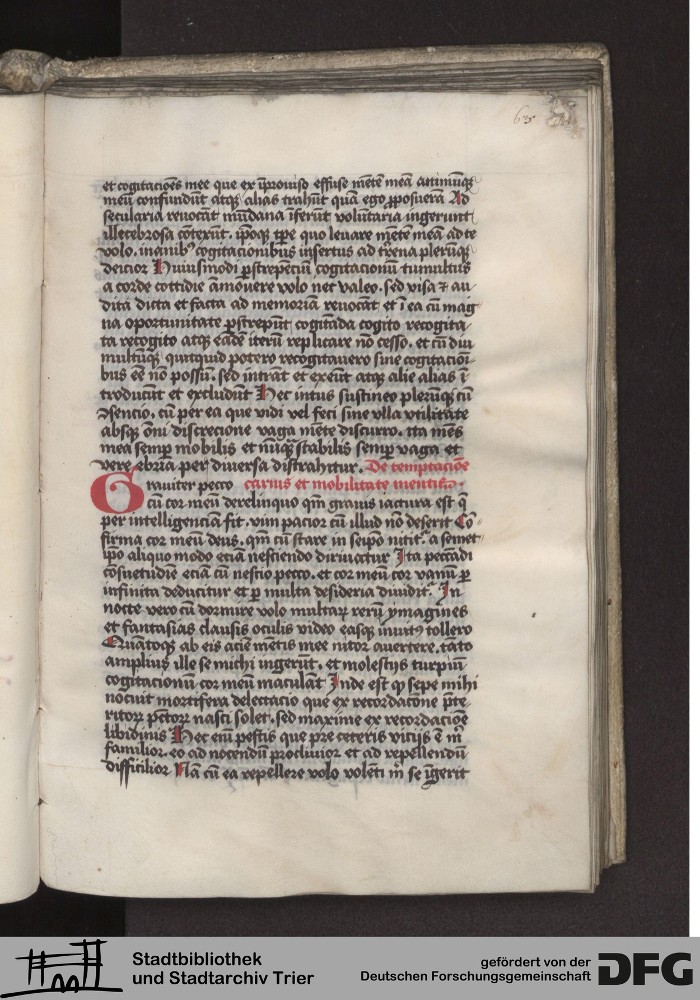 63
et cogitacōes mee que ex īprouiso effuse mētē meā animūq̄
meū confundūt atq̄ alias trahūt quā ego ꝓposuerā Ad
secularia reuocāt mūdana īferūt volūtaria ingerunt
illecebrosa cōtexūt. ipōq̄ tp̄e quo leuare mētē meā ad te
volo. inanibꝰ cogitacionibus insertus ad trēna plerūq̄
deicior Huiusmodi ꝑstrepēciū cogitacionū tumultus
a corde cottidie āmouere volo nec valeo. sed visa ⁊ au
dita dicta et facta ad memoriā reuocāt et ī ea cū mag
na oportunitate ꝑstrepūt cogitada cogito recogita
ta recogito atq̄ eadē iterū replicare nō cesso. et cū diu
multūq̄ quitquid potero recogitauero sine cogitacioī
bus eē nō possū. sed intrāt et exeūt atq̄ alie alias ī
troducūt et excludūt Hec intus sustineo plerūq̄ cū
assencio. cū per ea que vidi vel feci sine vlla vtilitate
absq̄ ōni discrecione vaga mēte discurro. ita mēs
mea semꝑ mobilis et nūq̄ stabilis semꝑ vaga et
vere ebria per diuersa distrahitur. De temptacōe
Grauiter pecco carnis et mobilitate mentis.
cū cor meū derelinquo qm̄ grauis iactura est q̄
per intelligenciā fit. vim pacior cū illud nō deserit Cō
firma cor meū deus. qm̄ cū stare in seipō nitit᷑. a semet
ipō aliquo modo eciā nesciendo diriuatur Ita peccādi
cōsuetudiē eciā cū nescio pecco. et cor meū cor vanū ꝑ
infinita deducitur et ꝑ multa desideria diuidit᷑. In
nocte vero cū dormire volo multaꝝ rerū ymagines
et fantasias clausis oculis video easq̄ inuitꝰ tollero
Quātoq̄ ab eis aciē mētis mee nitor auertere. tāto
amplius ille se michi ingerūt. et molestijs turpiū
cogitacionū cor meū maculāt Inde est ꝙ sepe mihi
nocuit mortifera delectacio que ex recordacōne p̄te
ritoꝝ pc̄toꝝ nasci solet. sed maxime ex recordacioē
libidinis Hec eni pestis que pre ceteris vicijs ē m̄
familior. eo ad nocendū procliuior et ad repellendū
difficilior Nā cū ea repellere volo volēti m̄ se īgerit
Stadtbibliothek
und Stadtarchiv Trier
gefördert von der
Deutschen Forschungsgemeinschaft
DFG